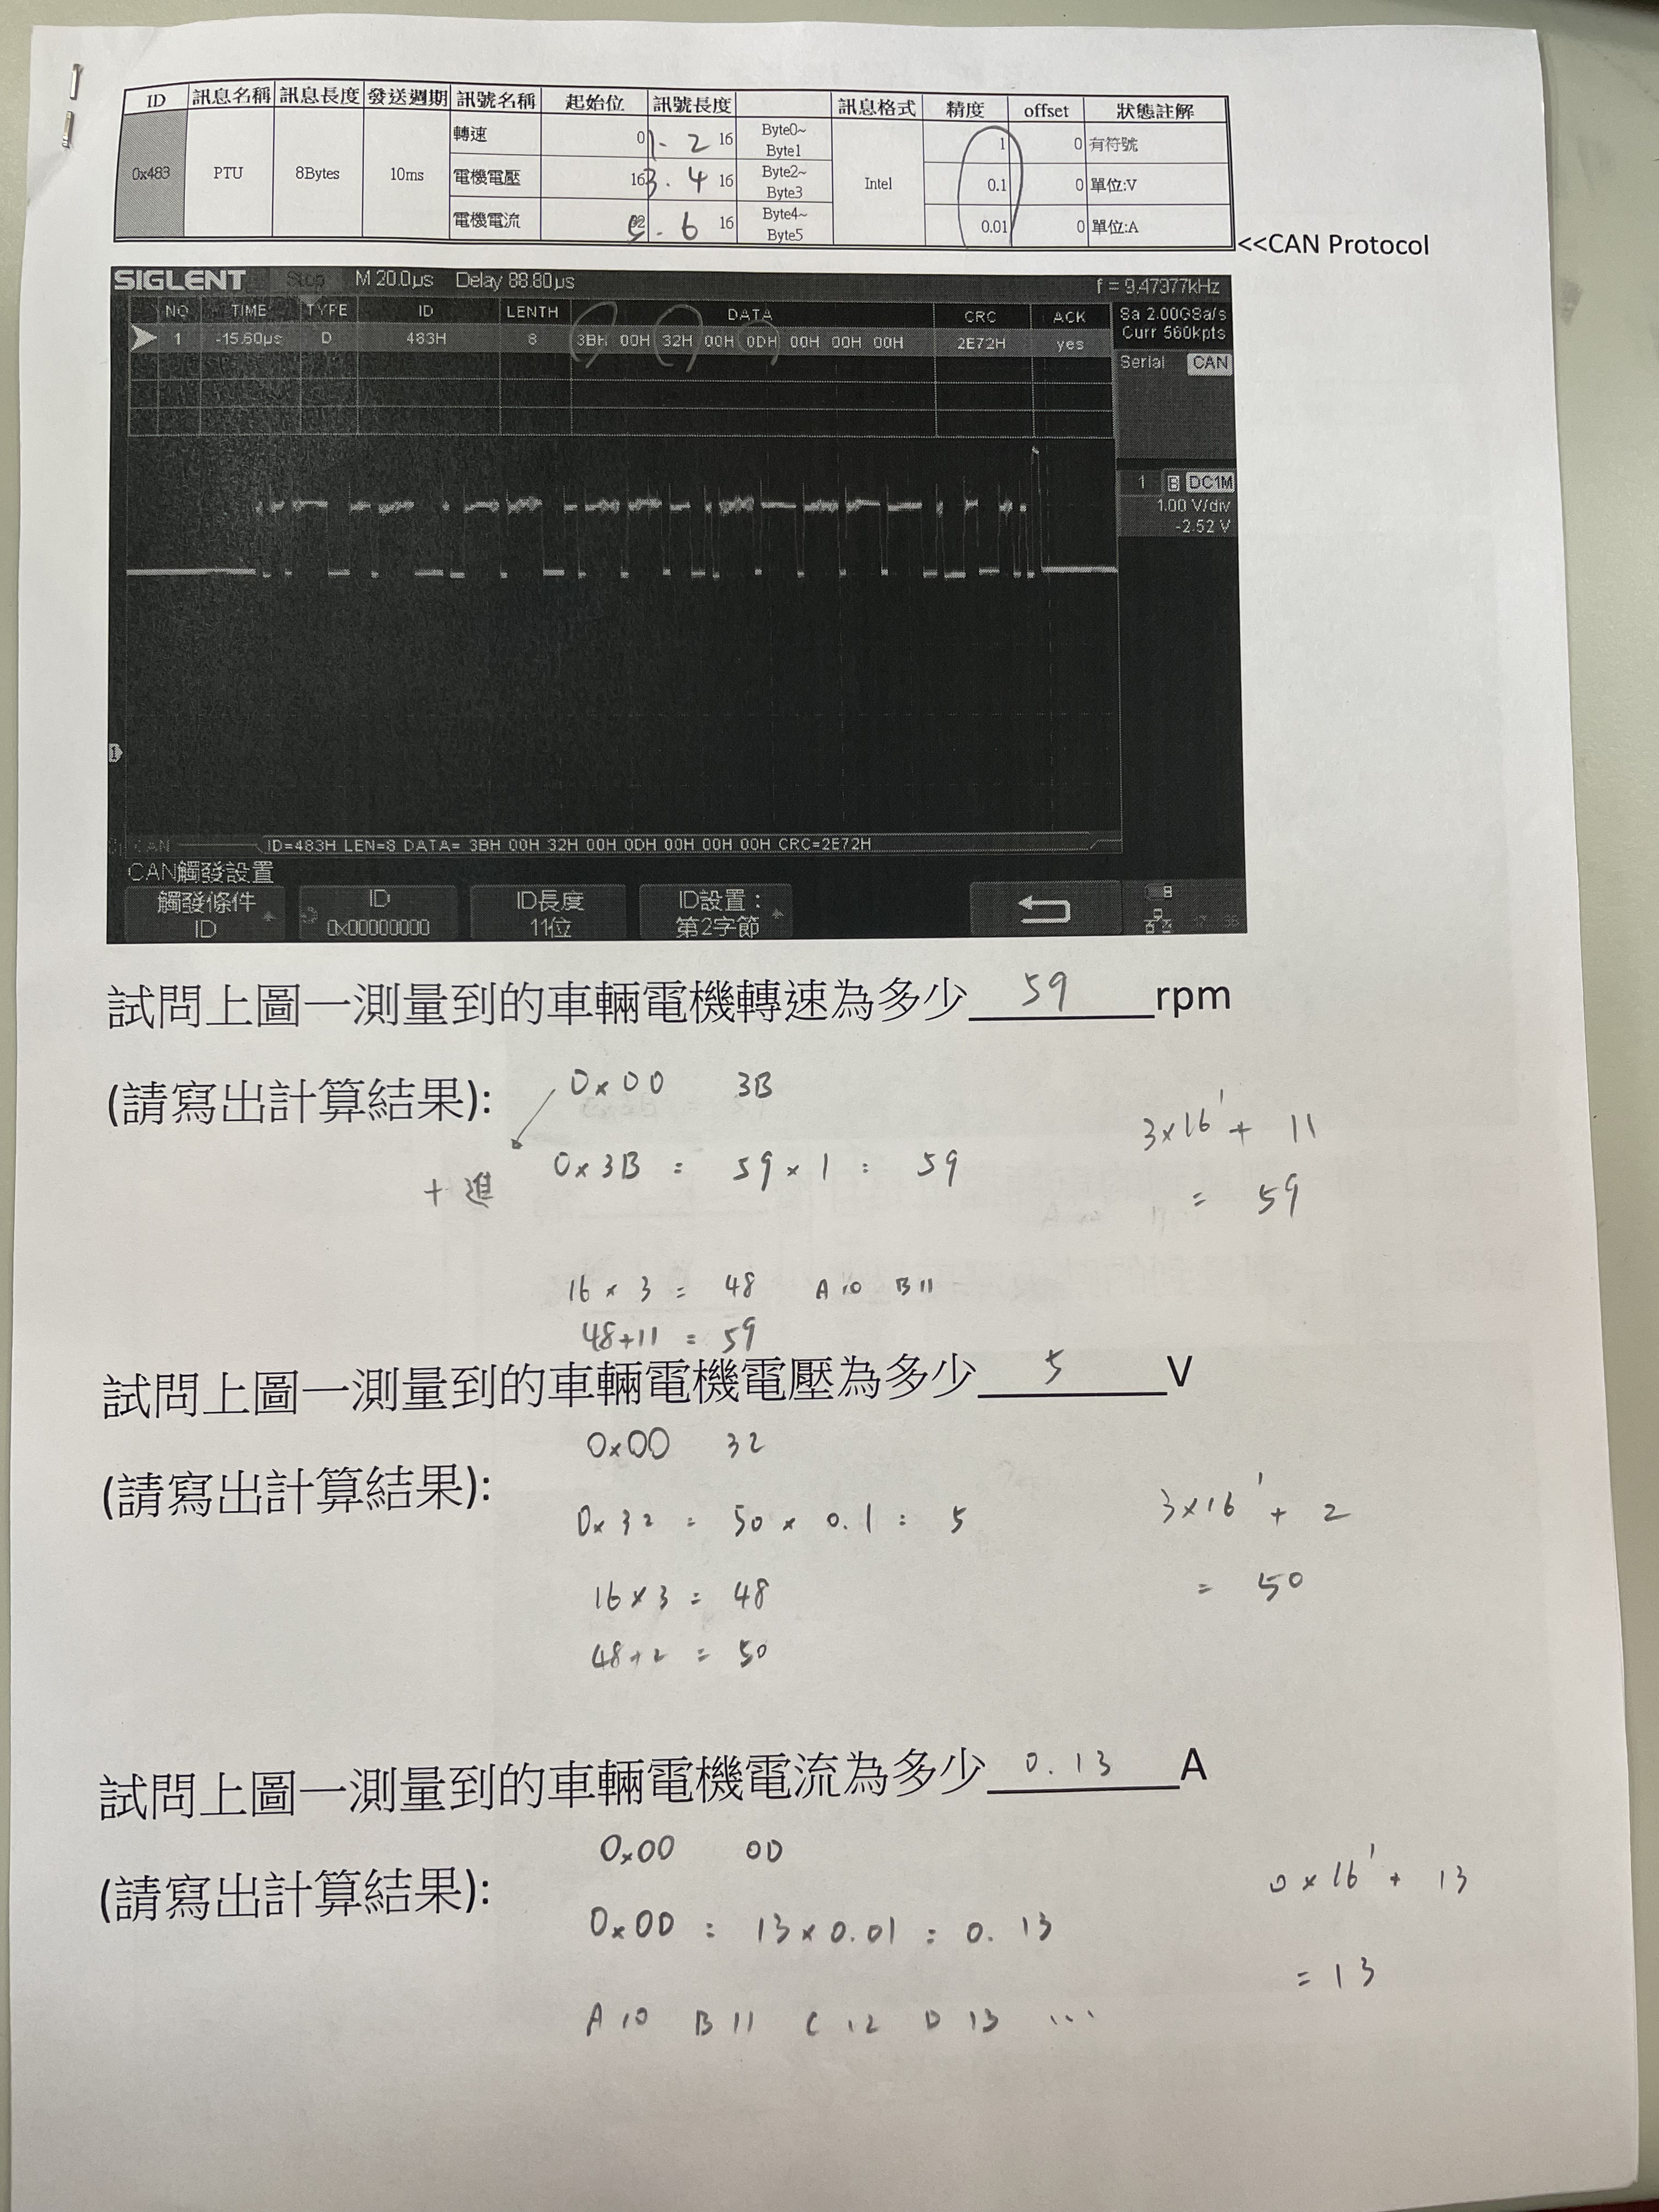 ID 訊息名稱 訊息長度 發送週期 訊號名稱 起始位 訊號長度 訊息格式 精度 offset 狀態註解
0x483 PTU 8Bytes 10ms Intel
轉速 0 1. 2 16 Byte0~ Byte1 1 0 有符號
電機電壓 16 3. 4 16 Byte2~ Byte3 0.1 0 單位:V
電機電流 . 6 16 Byte4~ Byte5 0.01 0 單位:A
<<CAN Protocol
SIGLENT Stop M 20.0µs Delay 88.80µs f = 9.47377kHz
NO TIME TYPE ID LENTH DATA CRC ACK
1 -15.60µs D 483H 8 3BH 00H 32H 00H 0DH 00H 00H 00H 2E72H yes
Sa 2.00GSa/s
Curr 560kpts
Serial CAN
1 B DC1M
1.00 V/div
-2.52 V
1
CAN ID=483H LEN=8 DATA= 3BH 00H 32H 00H 0DH 00H 00H 00H CRC=2E72H
CAN觸發設置
觸發條件 ID ID長度 ID設置：
ID 0x00000000 11位 第2字節
試問上圖一測量到的車輛電機轉速為多少 59 rpm
(請寫出計算結果): 0x00 3B
3x16' + 11
十進 0x3B = 59 x 1 = 59
= 59
16 x 3 = 48 A 10 B 11
48+11 = 59
試問上圖一測量到的車輛電機電壓為多少 5 V
0x00 32
(請寫出計算結果):
0x32 = 50 x 0.1 = 5 3x16' + 2
16 x 3 = 48 = 50
48+2 = 50
試問上圖一測量到的車輛電機電流為多少 0.13 A
0x00 0D
(請寫出計算結果): 0 x 16' + 13
0x0D = 13 x 0.01 = 0.13
= 13
A 10 B 11 C 12 D 13 ...